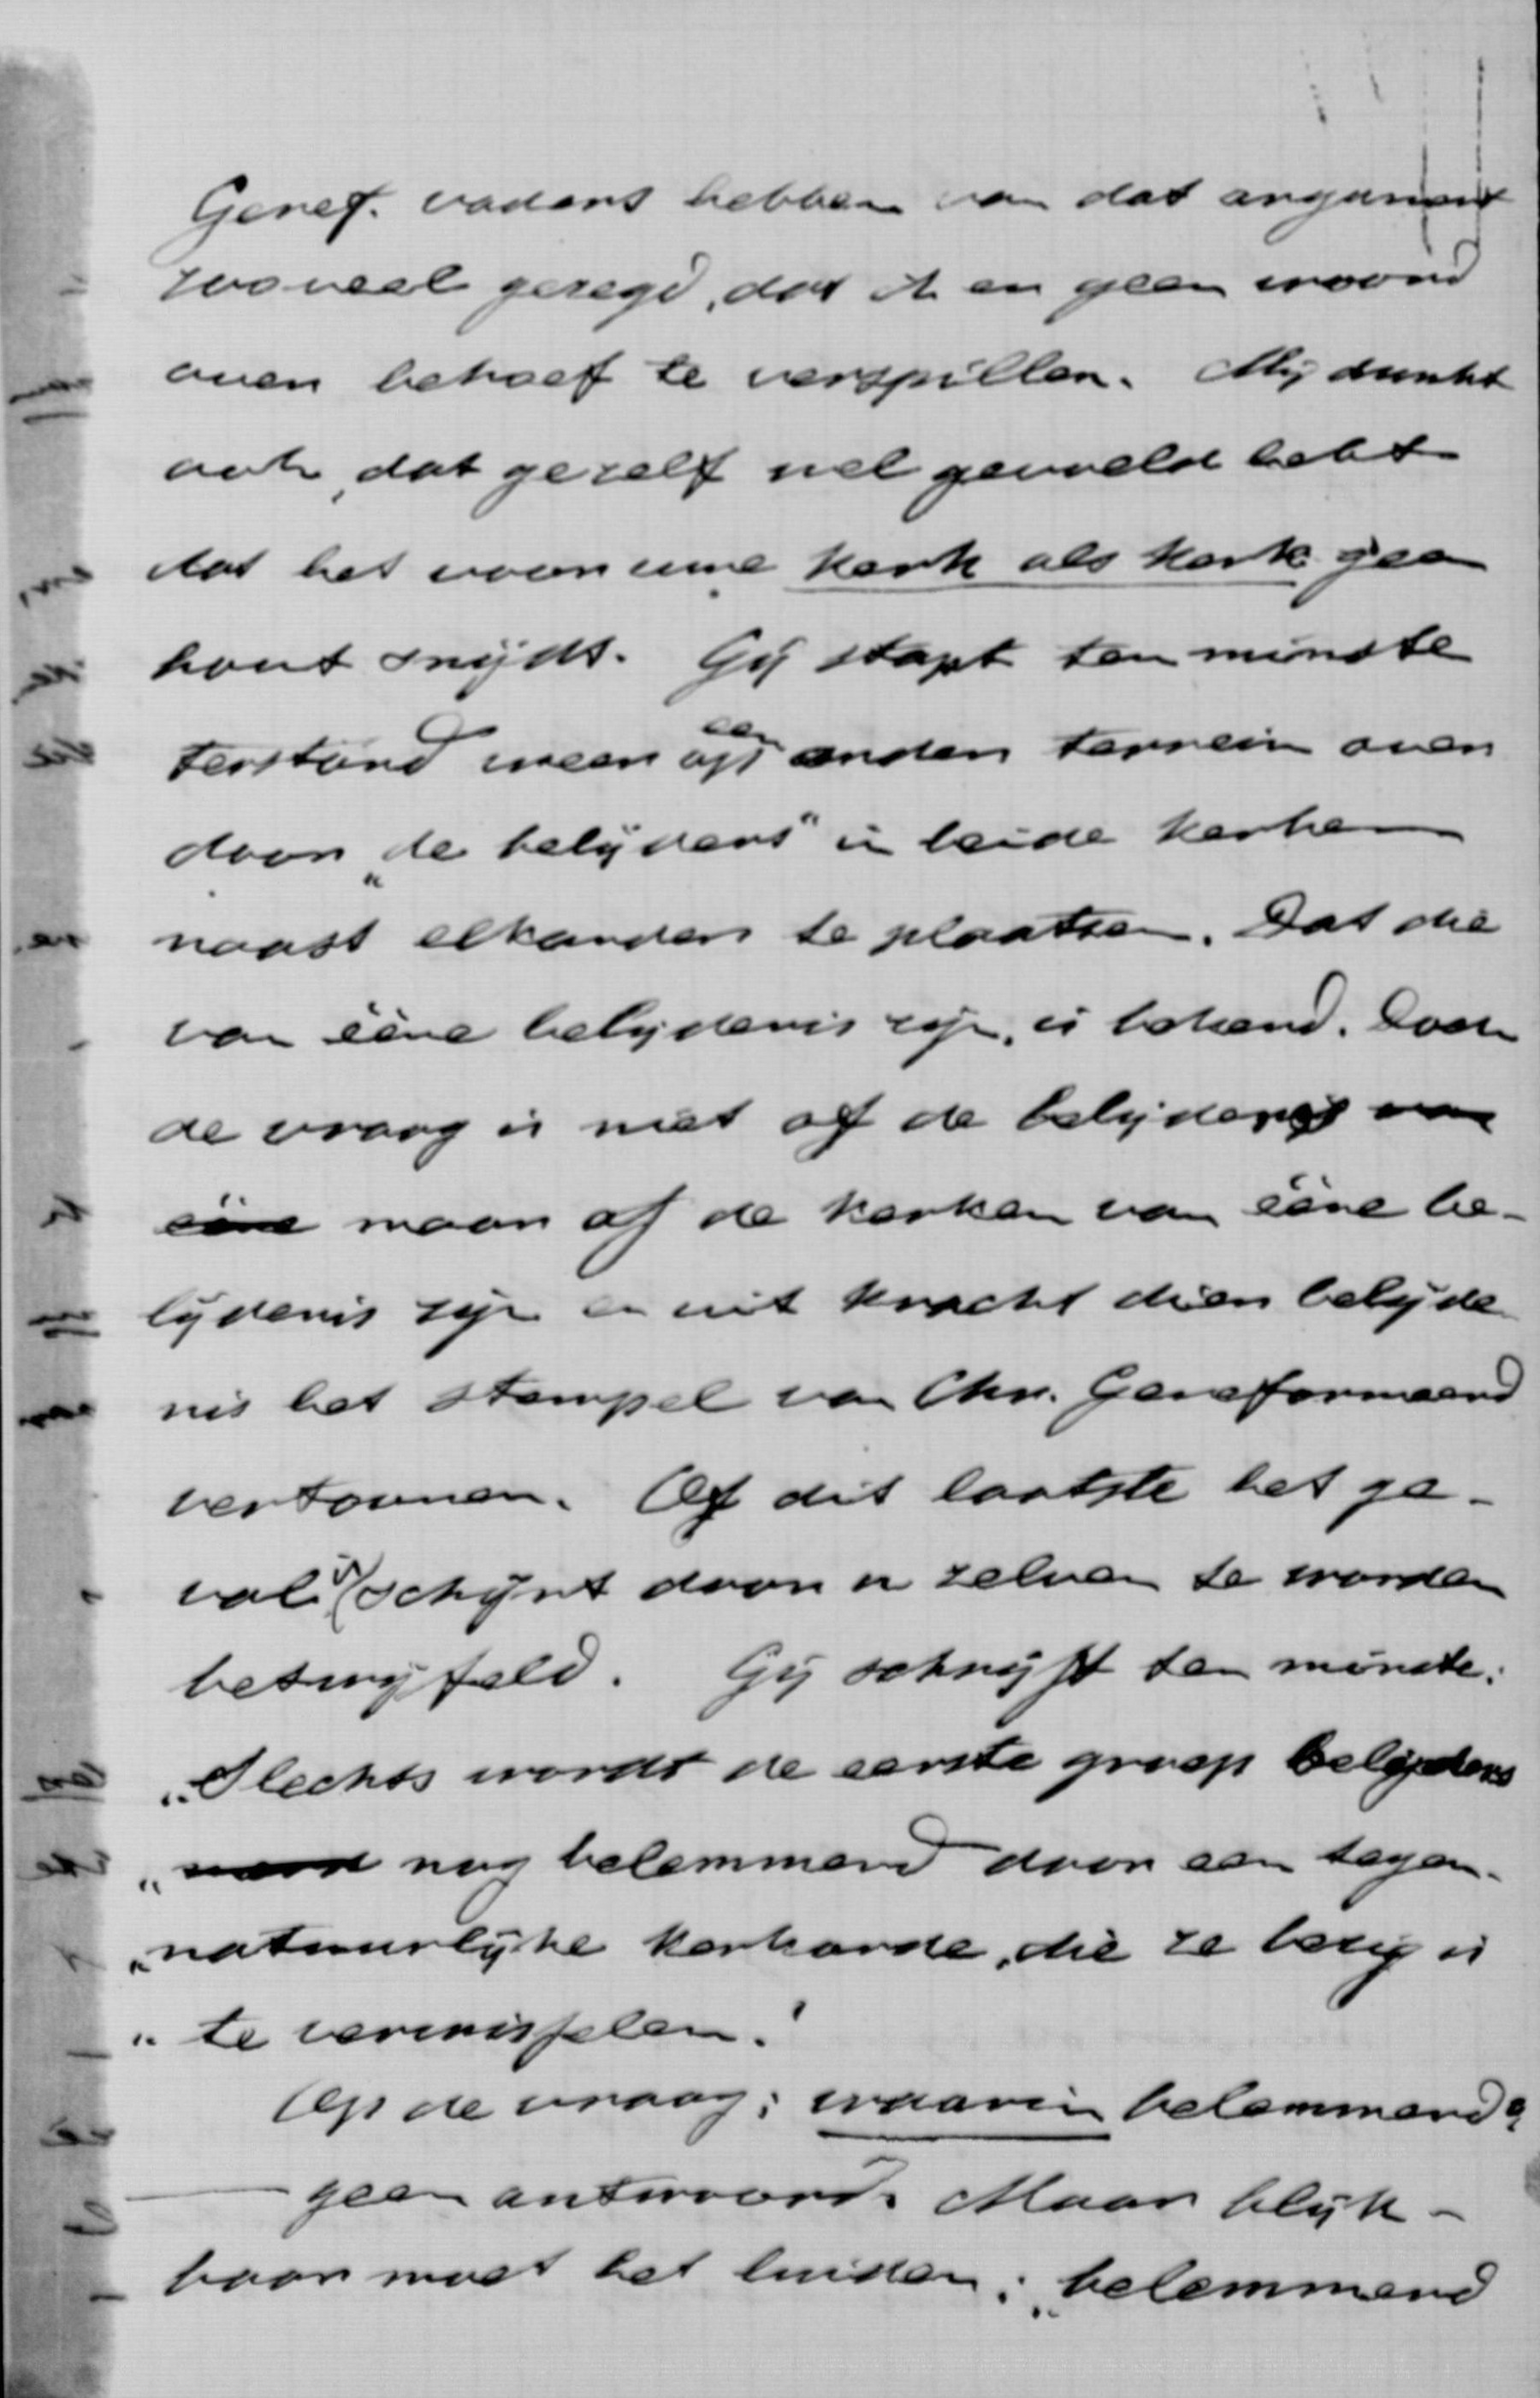 Geref. vaders hebben van dat argument
zooveel gezegd, dat ik er geen woord
over behoef te verspillen. Mij dunkt
ook, dat ge zelf wel gevoeld hebt
dat het voor uwe kerk als kerk geen
hout snijdt. Gij stapt ten minste
terstond weer op een ander terrein over
door „de belijders" in beide kerken
naast elkander te plaatsen. Dat die
van ééne belijdenis zijn, is bekend. Doch
de vraag is niet of de belijders van
ééne maar of de kerken van ééne be-
lijdenis zijn en uit kracht dier belijde
nis het stempel van Chr. Gereformeerd
vertoonen. Of dit laatste het ge-
val is, schijnt door u zelven te worden
betwijfeld. Gij schrijft ten minste:
„Slechts wordt de eerste groep belijders
„ nog belemmerd door een tegen-
„natuurlijke kerkorde, die ze bezig is
„ te verwisselen."
Op de vraag: waarin belemmerd?
— geen antwoord. Maar blijk-
baar moet het luiden: „belemmerd